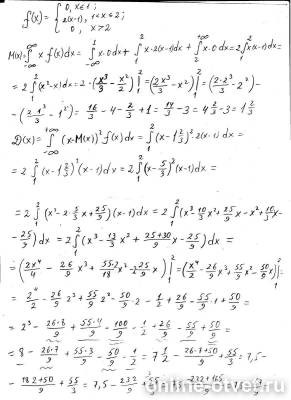 f(x) = { 0, x ≤ 1; 2(x-1), 1 < x ≤ 2; 0, x > 2
M(x) = ∫_{-∞}^{+∞} x f(x) dx = ∫_{-∞}^{1} x·0 dx + ∫_1^2 x·2(x-1) dx + ∫_2^{+∞} x·0 dx = 2∫_1^2 x(x-1) dx =
= 2∫_1^2 (x²-x) dx = 2·(x³/3 - x²/2)|_1^2 = (2x³/3 - x²)|_1^2 = (2·2³/3 - 2²) -
- (2·1³/3 - 1²) = 16/3 - 4 - 2/3 + 1 = 14/3 - 3 = 4 2/3 - 3 = 1 2/3
D(x) = ∫_{-∞}^{+∞} (x-M(x))² f(x) dx = ∫_1^2 (x - 1 2/3)²·2(x-1) dx =
= 2∫_1^2 (x - 1 2/3)² (x-1) dx = 2∫_1^2 (x - 5/3)² (x-1) dx =
= 2∫_1^2 (x² - 2·5/3 x + 25/9)(x-1) dx = 2∫_1^2 (x³ - 10/3 x² + 25/9 x - x² + 10/3 x -
- 25/9) dx = 2∫_1^2 (x³ - 13/3 x² + 25+30/9 x - 25/9) dx =
= (2x⁴/4 - 26/9 x³ + 55·2/18 x² - 2·25/9 x)|_1^2 = (x⁴/2 - 26/9 x³ + 55/9 x² - 50/9 x)|_1^2 =
= 2⁴/2 - 26/9 · 2³ + 55/9 · 2² - 50/9 · 2 - 1/2 + 26/9 - 55/9 · 1 + 50/9 =
= 2³ - 26·8/9 + 55·4/9 - 100/9 - 1/2 + 26/9 - 55/9 + 50/9 =
= 8 - 26·7/9 + 55·3/9 - 50/9 - 1/2 = 7 1/2 - 26·7+50/9 + 55/3 = 7,5 -
- 182+50/9 + 55/3 = 7,5 - 232/9 + 55/3
online-otvet.ru